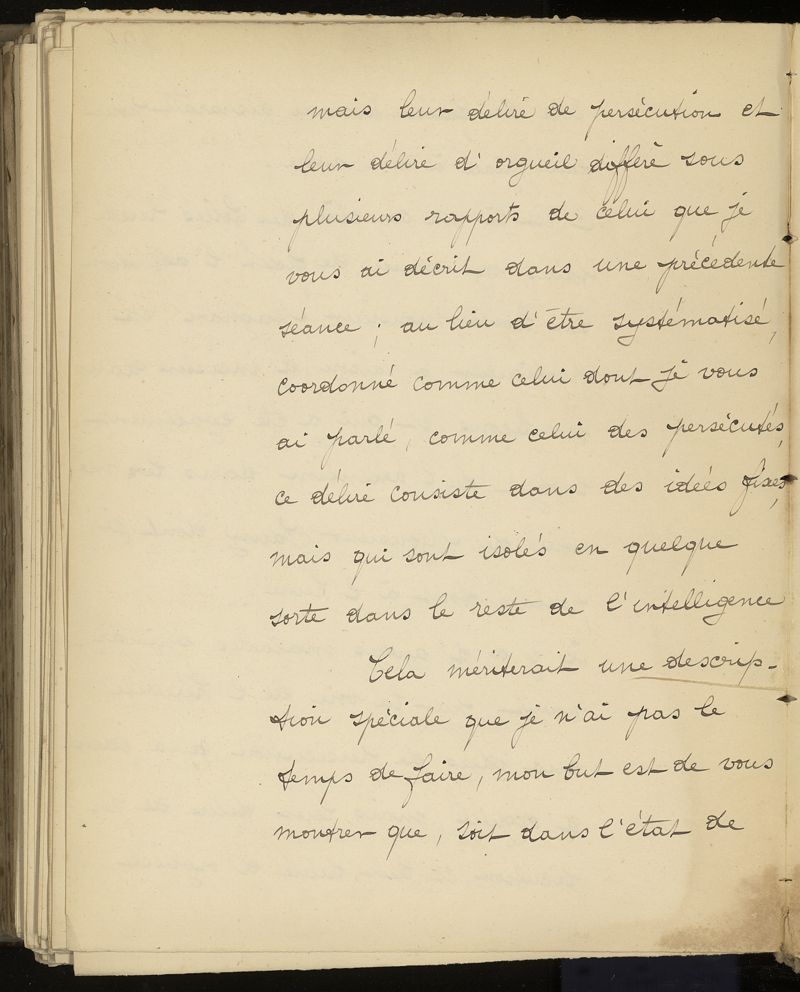 mais leur délire de persécution et
leur délire d'orgueil diffère sous
plusieurs rapports de celui que je
vous ai décrit dans une précédente
séance ; au lieu d'être systématisé,
coordonné comme celui dont je vous
ai parlé, comme celui des persécutés,
ce délire consiste dans des idées fixes,
mais qui sont isolés en quelque
sorte dans le reste de l'intelligence
Cela mériterait une descrip-
tion spéciale que je n'ai pas le
temps de faire, mon but est de vous
montrer que, soit dans l'état de